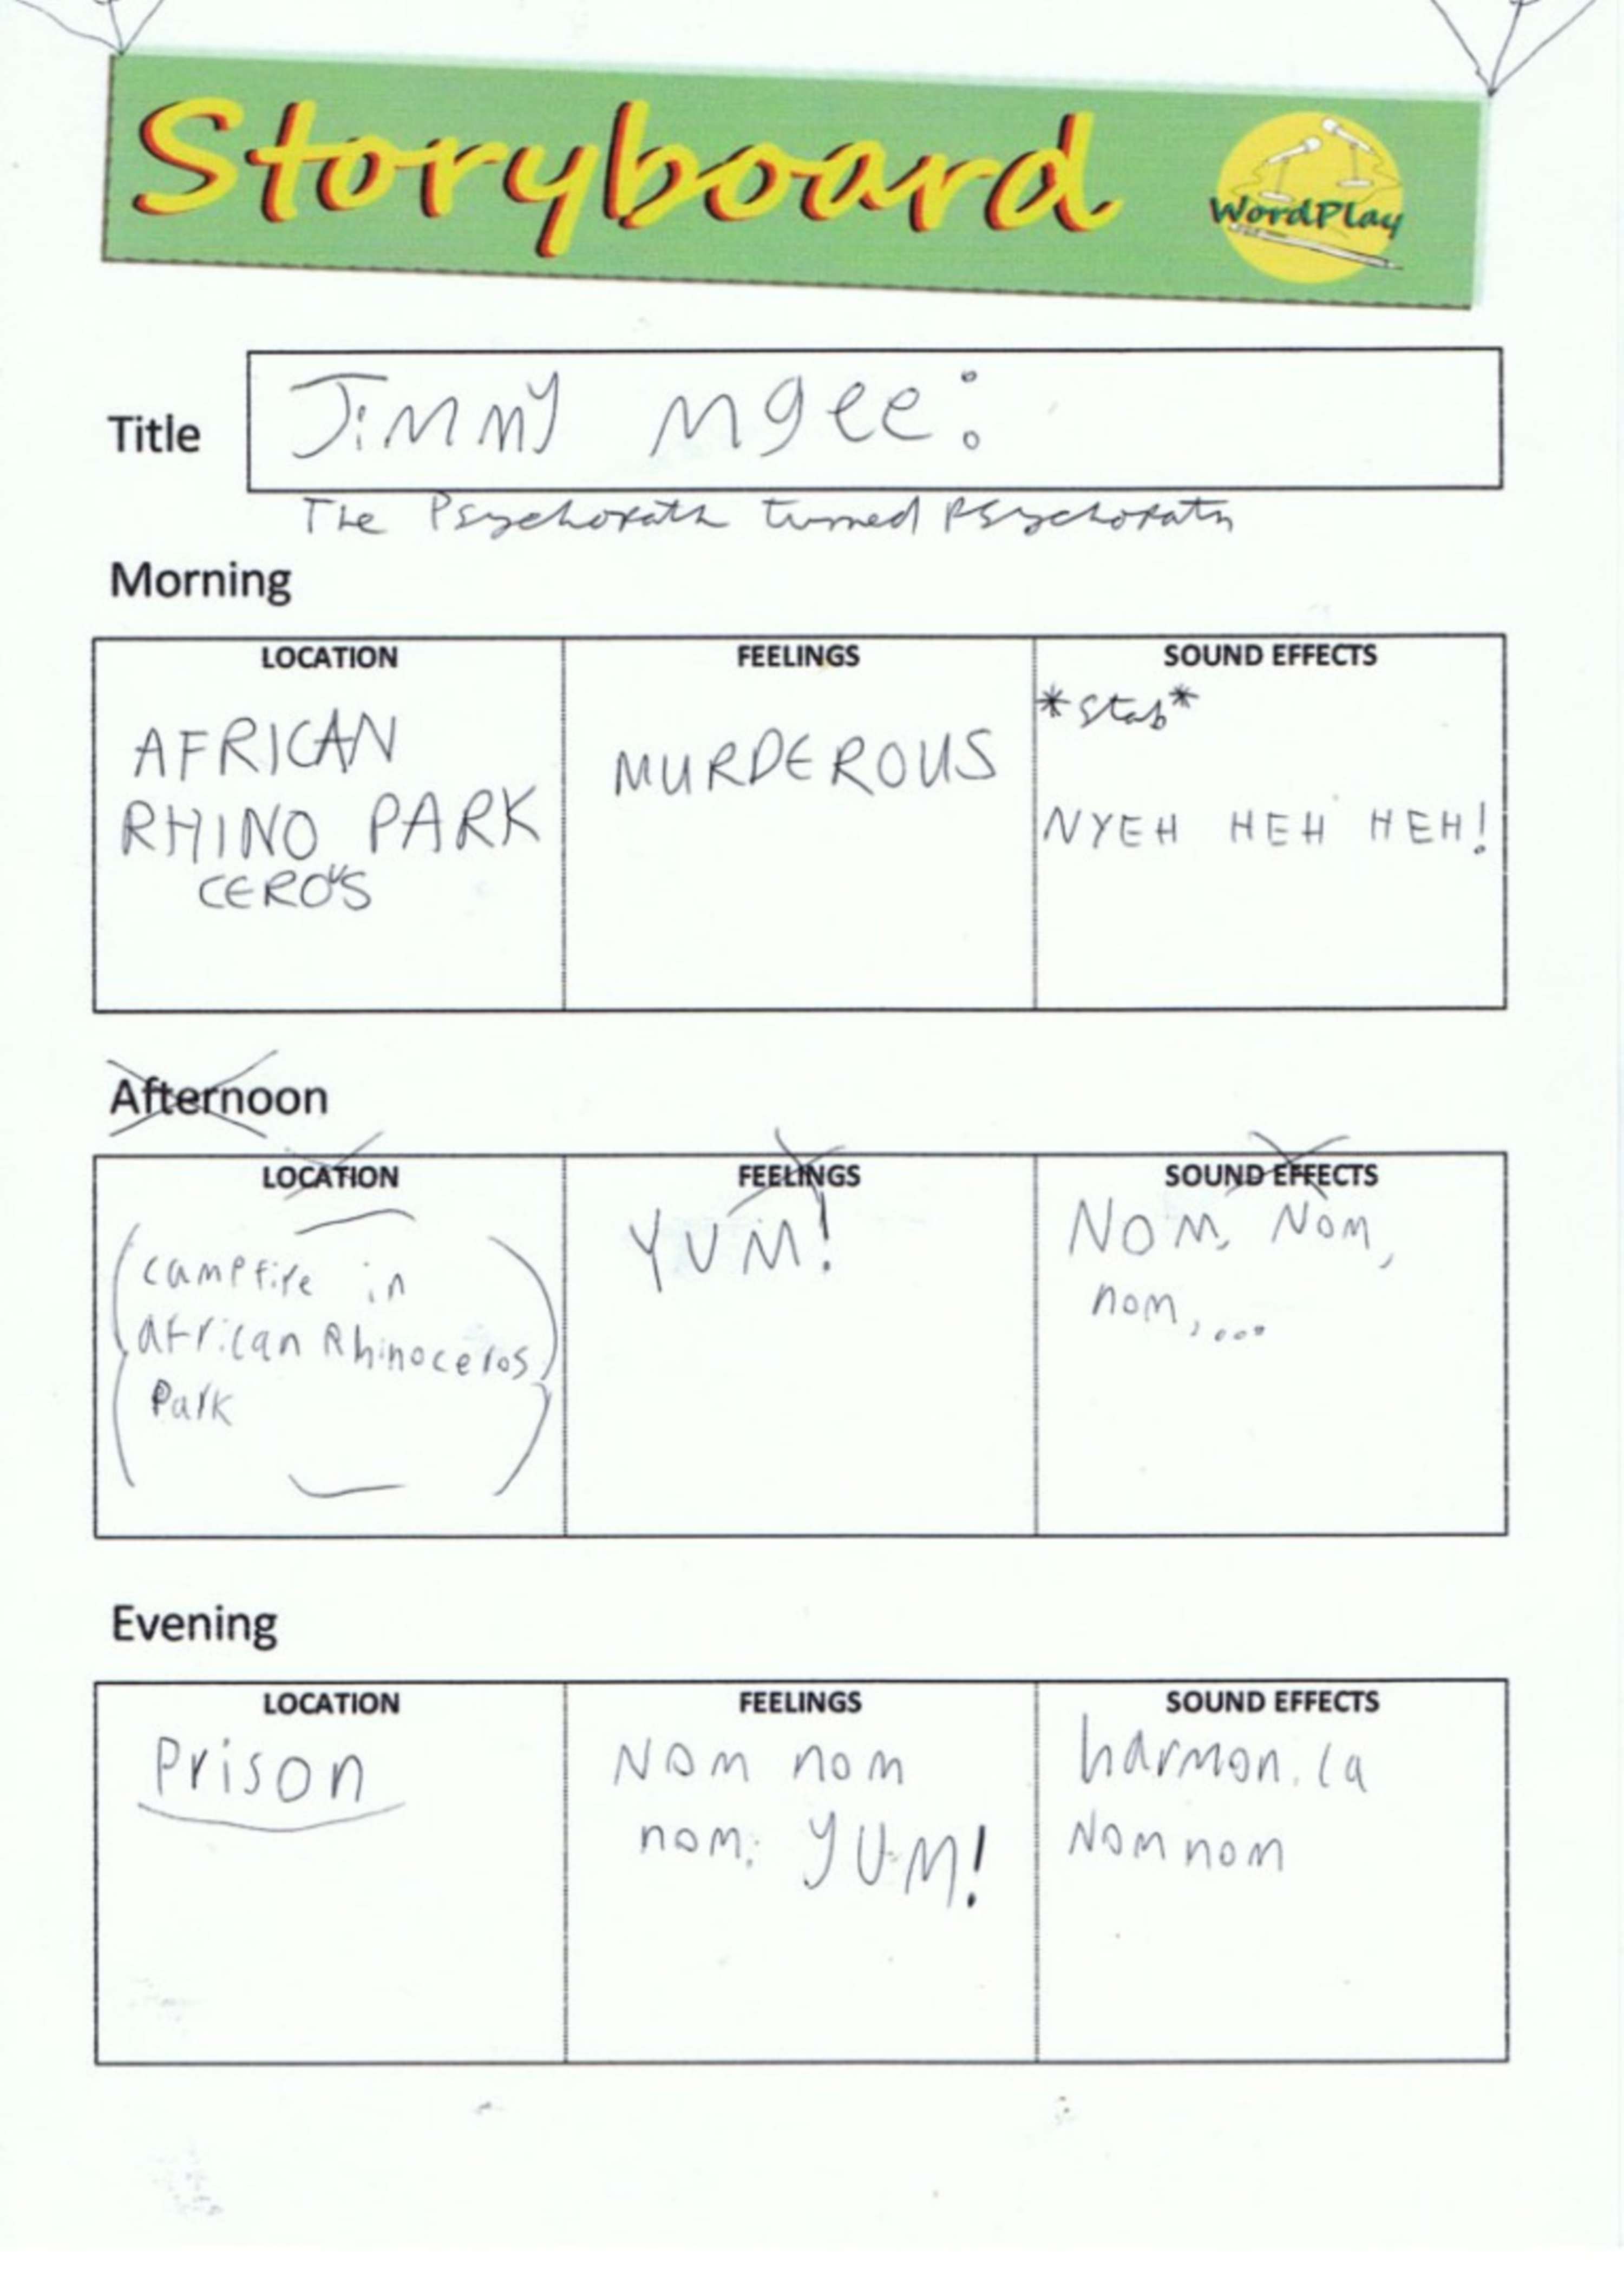 Storyboard
WordPlay
Title
Jimmy Mgee:
The Psychopath turned Psychopath
Morning
LOCATION
FEELINGS
SOUND EFFECTS
AFRICAN
RHINO PARK
CEROUS
MURDEROUS
*Stab*
NYEH HEH HEH!
Afternoon
LOCATION
FEELINGS
SOUND EFFECTS
campfire in
African Rhinoceros
Park
YUM!
NOM, NOM,
nom,...
Evening
LOCATION
FEELINGS
SOUND EFFECTS
Prison
Nom nom
nom. YUM!
harmonica
Nom nom